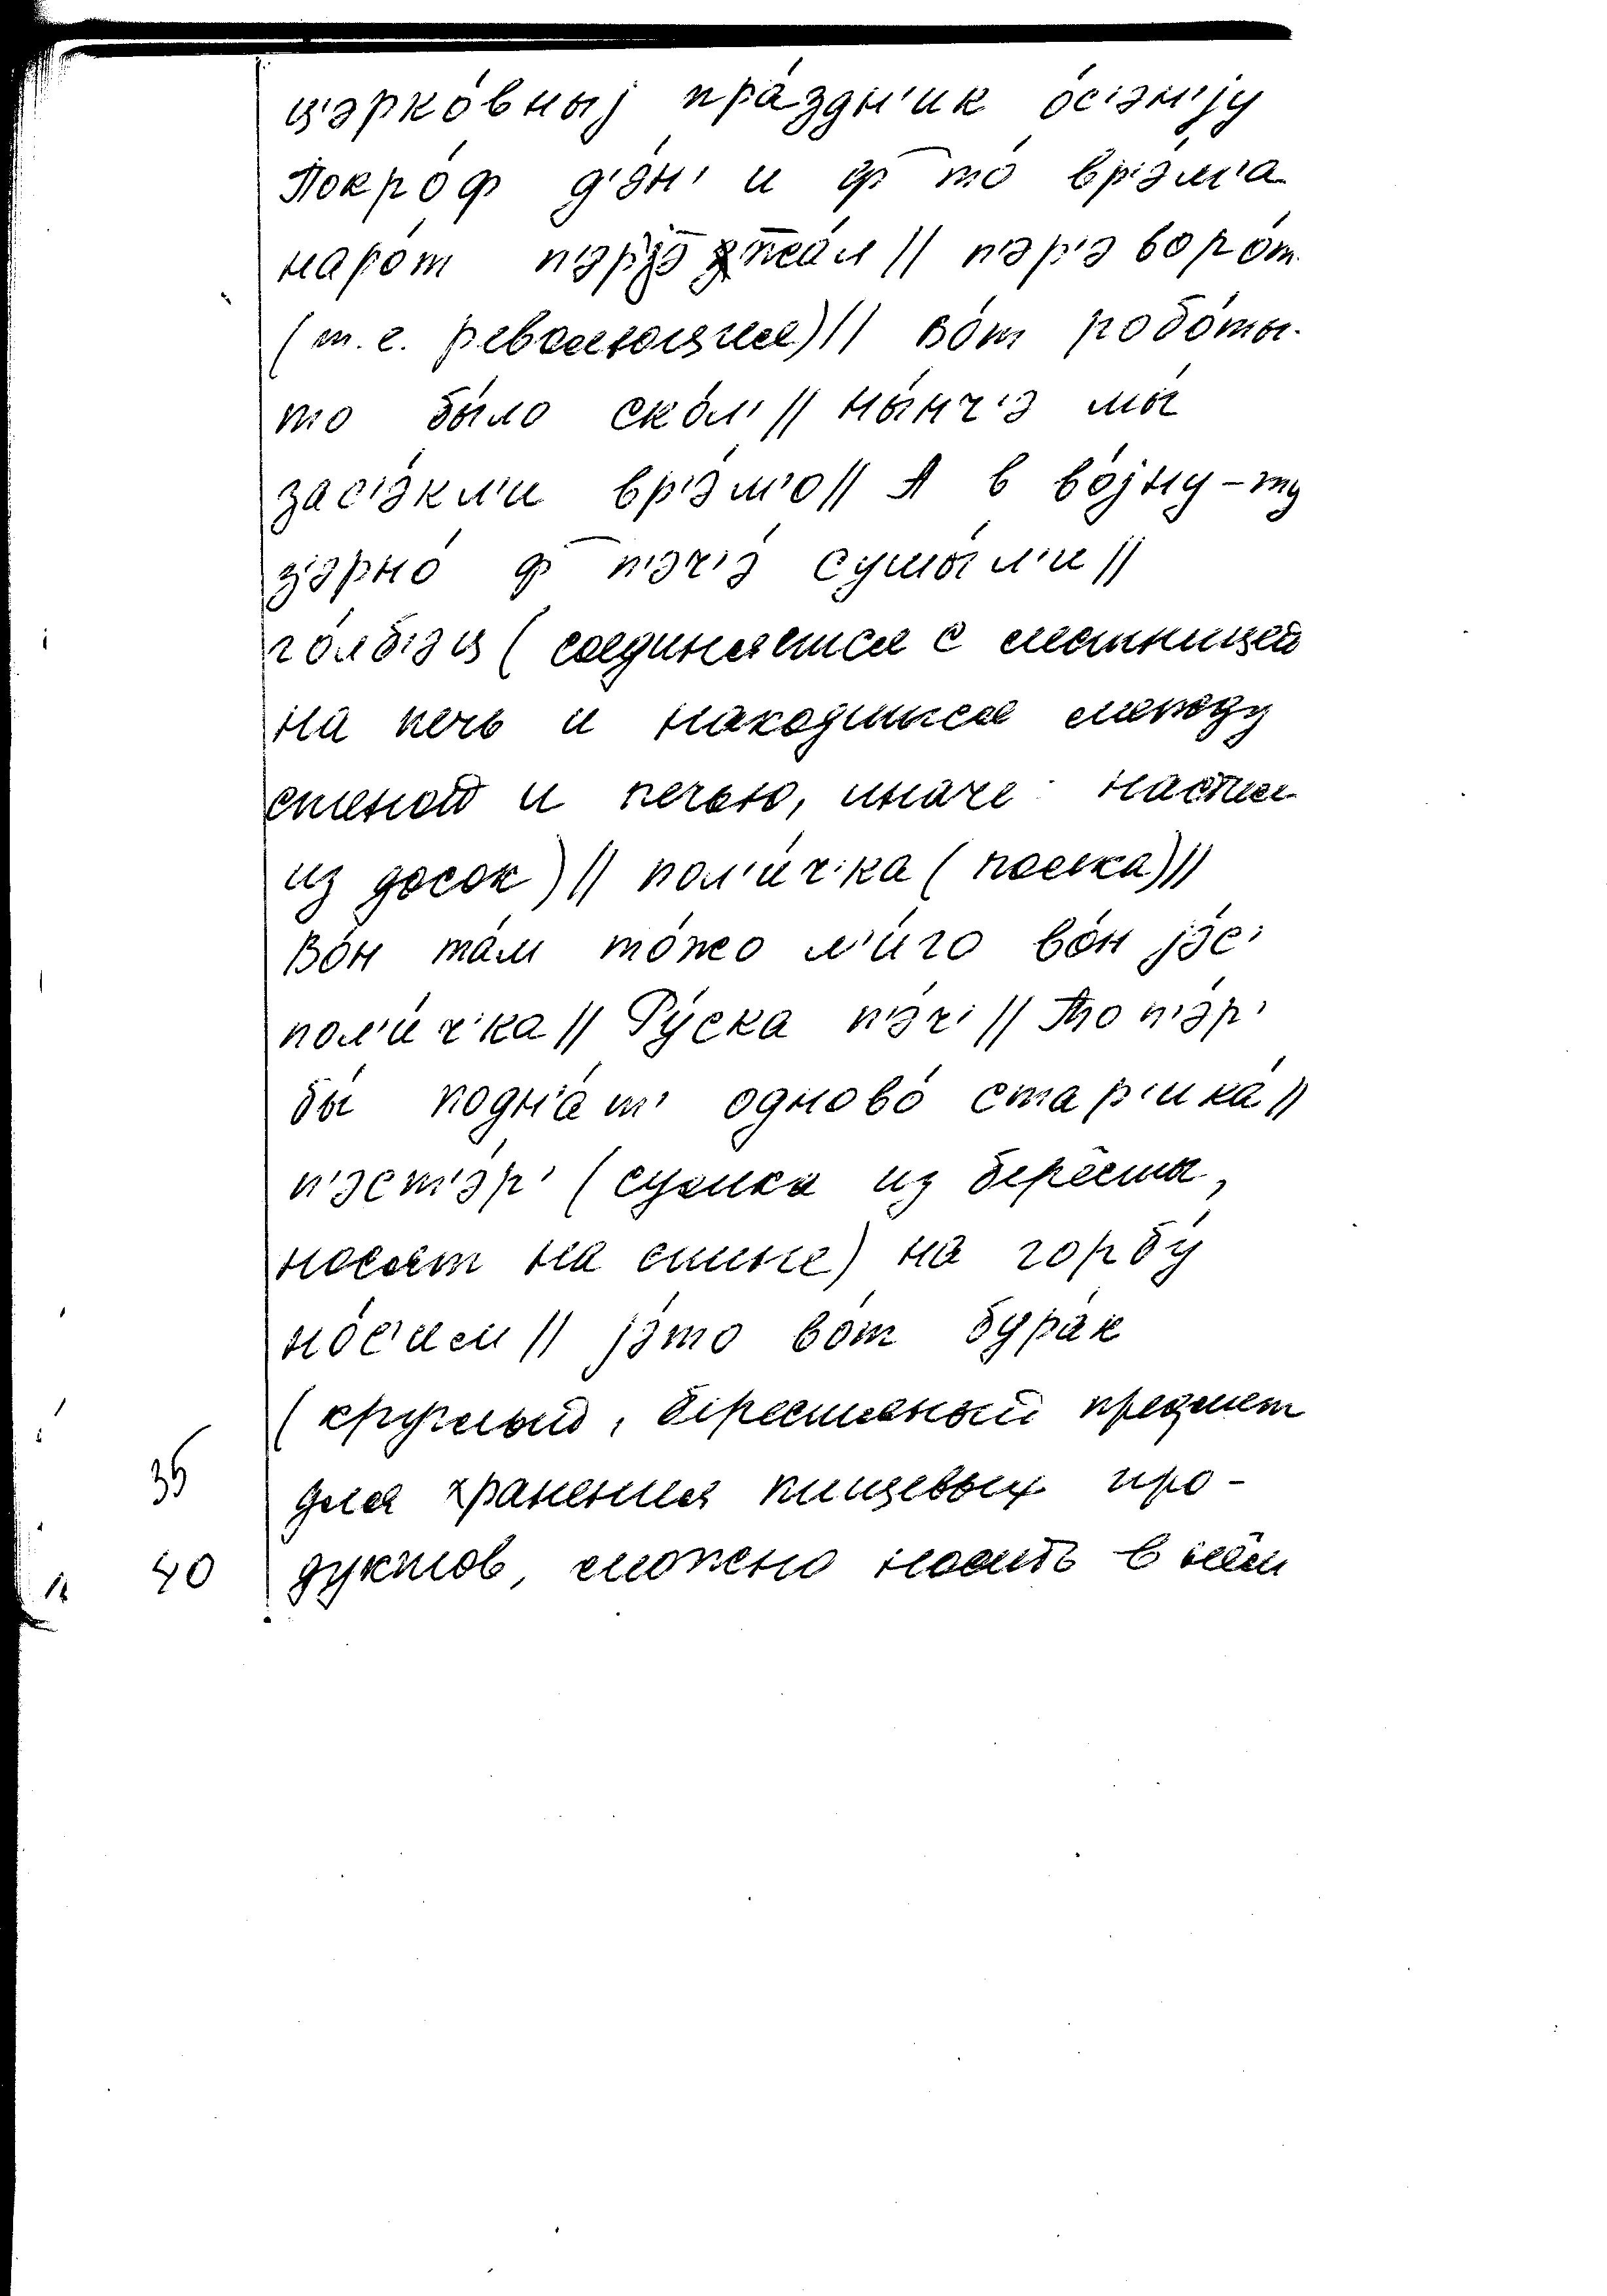 ц'эрко́вныj пра́зд'н'ик о́с'эн'jу
Покро́ф д'э́н' и ф то́ вр'э́м'а
наро́т п'эр'jэжа́л // п'эр'эворо́т
(т.е. революция) // во́т робо́ты-
то бы́ло ско́л' // ны́нч'э мы́
зас'э́кл'и вр'э́м'о // А в во́jну-ту
з'эрно́ ф п'эч'э́ сушы́л'и //
го́лб'эц (соединяется с лестницей
на печь и находится между
стеной и печью, иначе настил
из досок) // пол'и́ч'ка (полка) //
Во́н та́м то́жо л'и́го во́н jэ́с'
пол'и́ч'ка // Ру́ска п'э́ч' // То п'э́р'
бы́ подн'а́т' одново́ стар'ика́ //
п'эст'э́р' (сумка из берёсты,
носят на спине) на горбу́
но́с'им // jэ́то во́т бура́к
(круглый, берестяный предмет
35 для хранения пищевых про-
40 дуктов, можно носить в нём